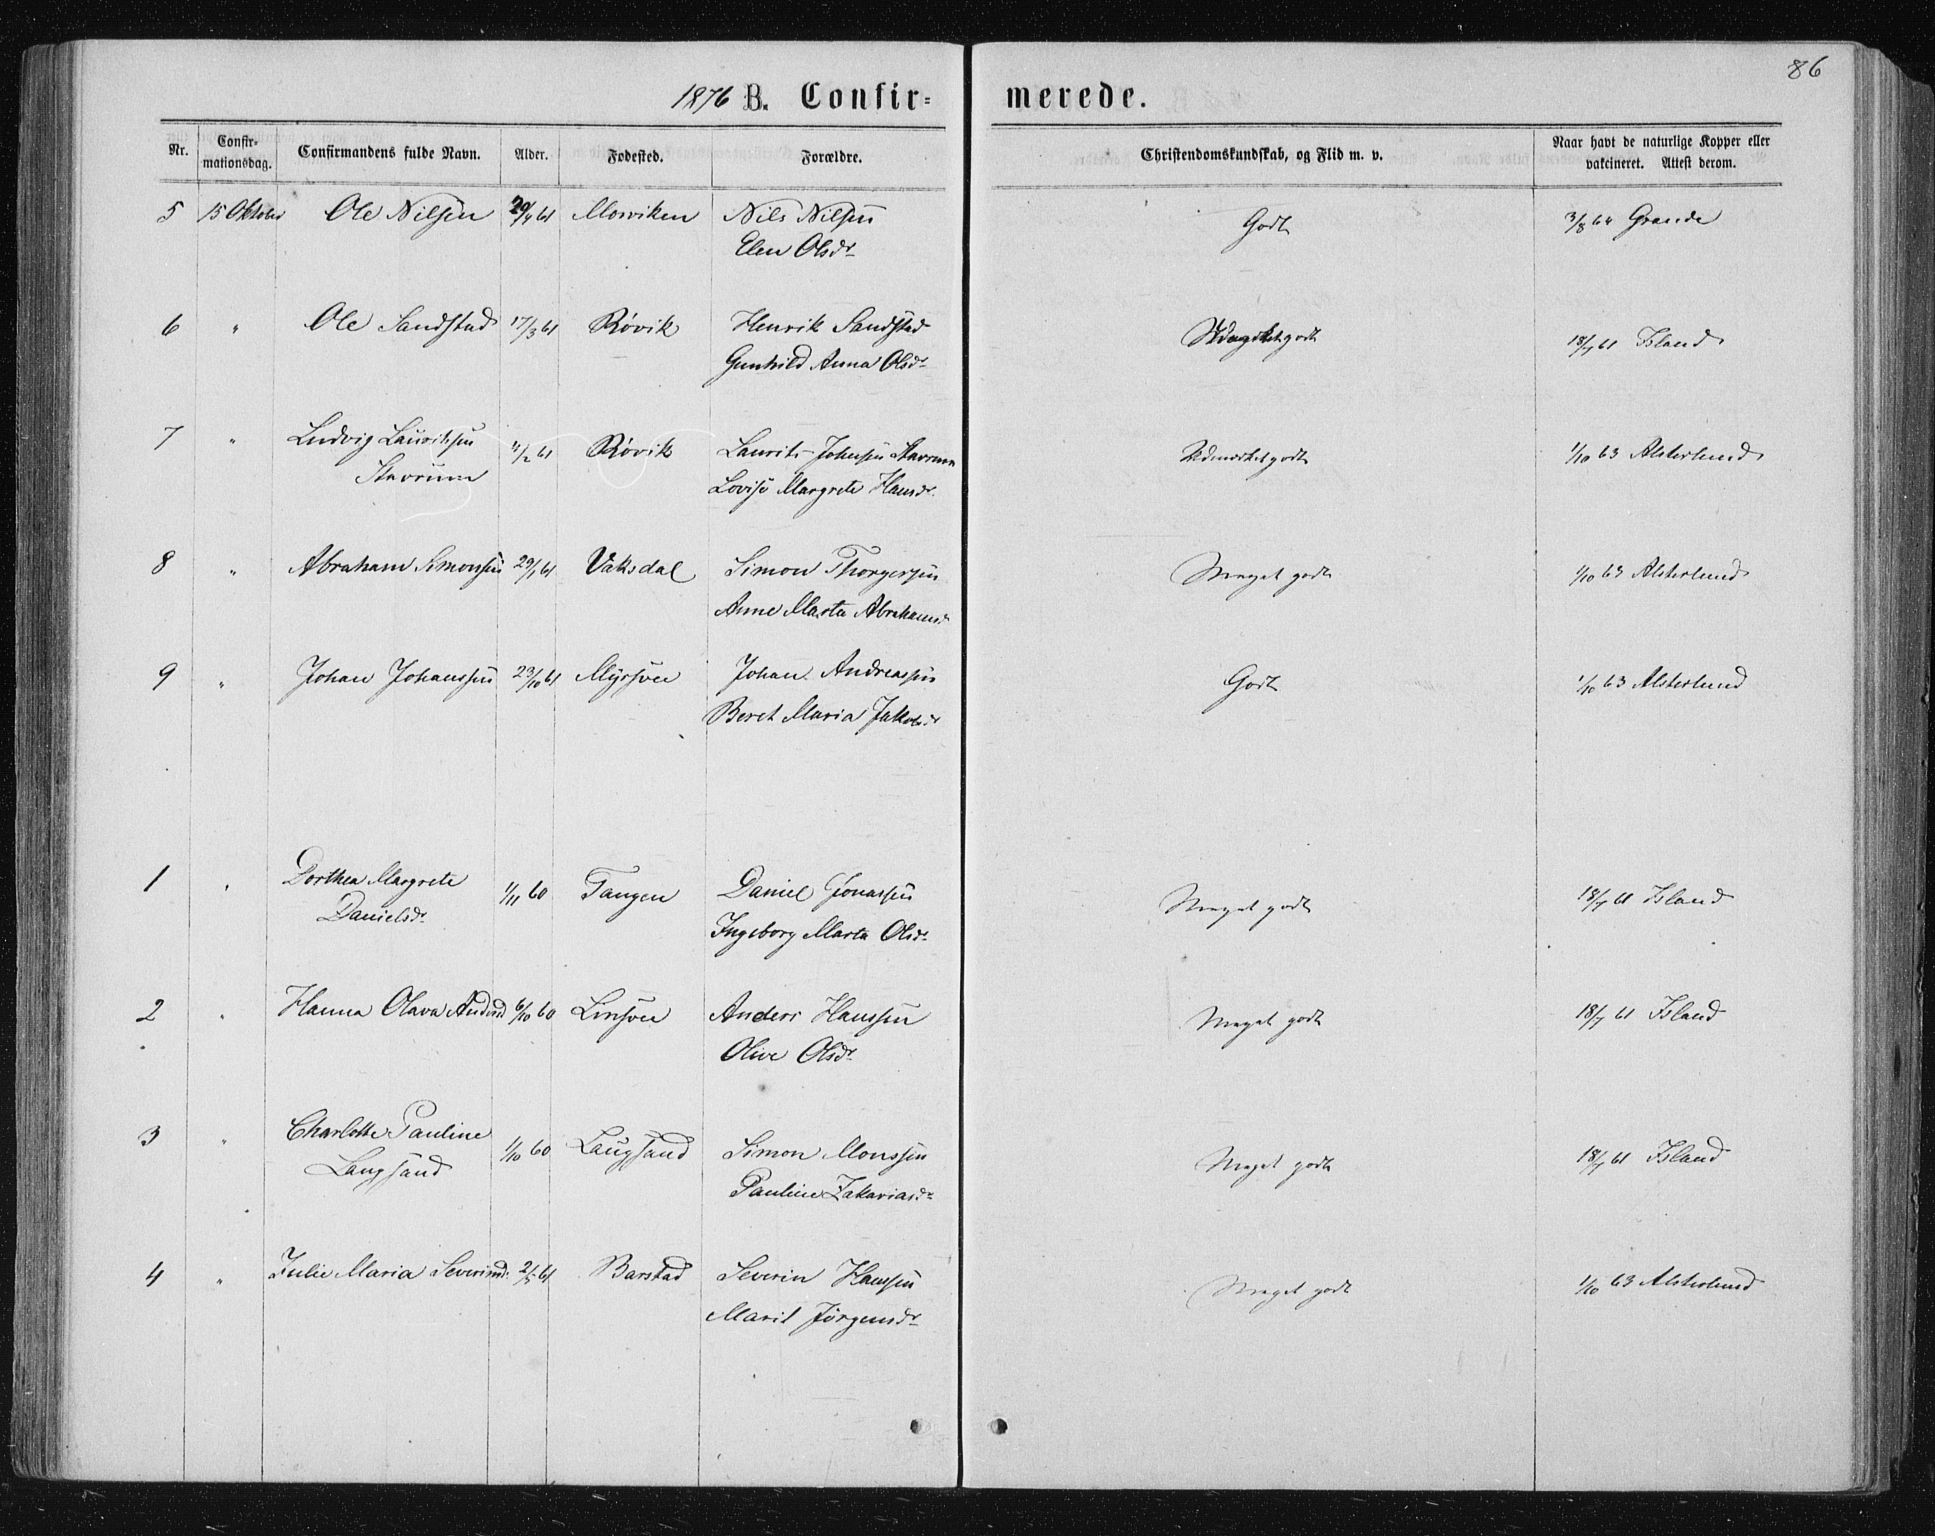 86
1876 B. Confir=merede.
Nr. Confir-mationsdag. Confirmandens fulde Navn. Alder. Fødested. Forældre. Christendomskundskab, og Flid m. v. Naar havt de naturlige Kopper eller vakcineret. Attest derom.
5 15 Oktober Ole Nilsen 29/4 61 Nils Nilsen Godt 3/8 64 Grande
Elen Olsdr
6 " Ole Sandstad 17/3 61 Røvik Henrik Sandstad 18/7 61 Island
Gunhild Anna Olsdr
7 " Ludvig Lauritsen 4/2 61 Røvik Laurits Johnsen Stavrum Udmærket godt 1/10 63 Alsterlund
Stavrum Lovise Margrete Hansdr
8 " Abraham Simonsen 29/1 61 Vaksdal Simon Thorgersen Meget godt 1/10 63 Alsterlund
Anne Marta Abrahamsd
9 " Johan Johanssen 23/10 61 Johan Andreassen Godt 1/10 63 Alsterlund
Beret Maria Jakobsdr
1 " Dorthea Margrete 1/11 60 Tangen Daniel Jonassen Meget godt 18/7 61 Island
Danielsdr Ingeborg Marta Olsdr
2 " Hanna Olava Andersd 6/10 60 Anders Hanssen Meget godt 18/7 61 Island
Olive Olsdr
3 " Charlotte Pauline 1/10 60 Laugsand Simon Monssen Meget godt 18/7 61 Island
Laugsand Pauline Zakariasdr
4 " Julie Maria Severinsd. 2/5 61 Barstad Severin Hansen Meget godt 1/10 63 Alsterlund
Marit Jørgensdr